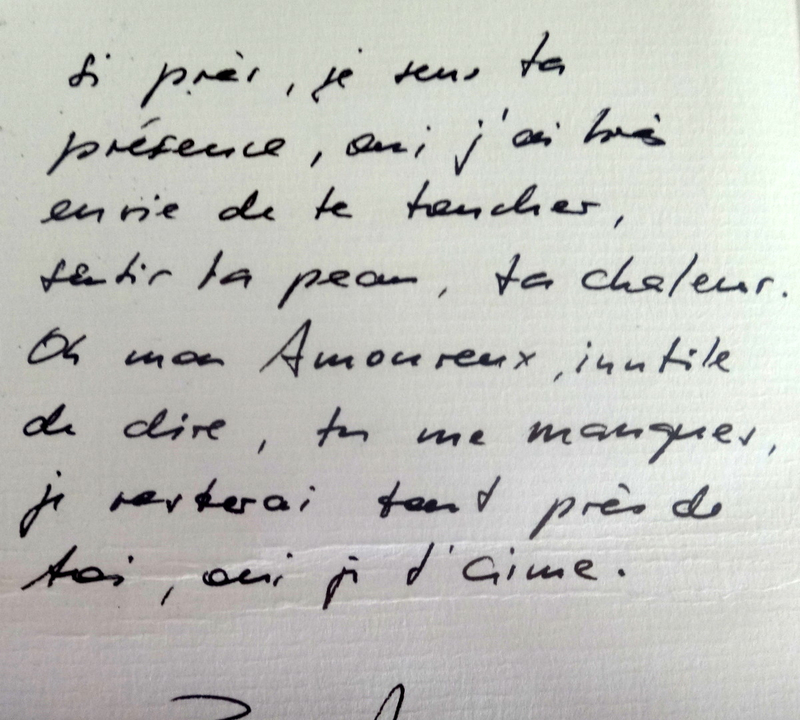 si près, je sens ta
présence, oui j'ai très
envie de te toucher,
sentir ta peau, ta chaleur.
Oh mon Amoureux, inutile
de dire, tu me manques,
je resterai tout près de
toi, oui je t'aime.